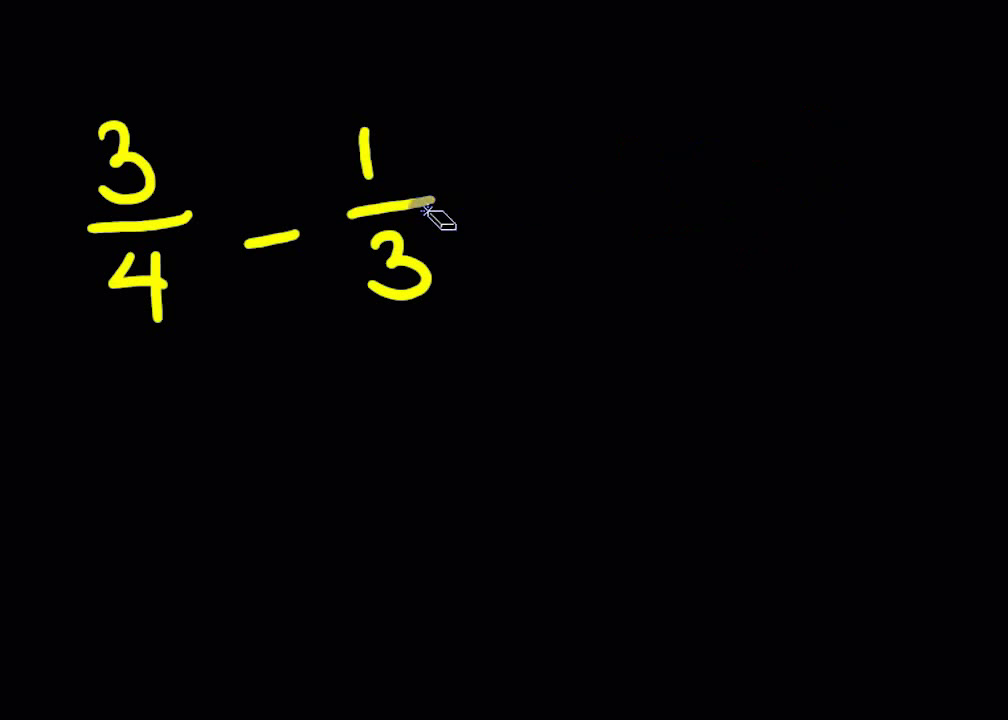 3/4 - 1/3